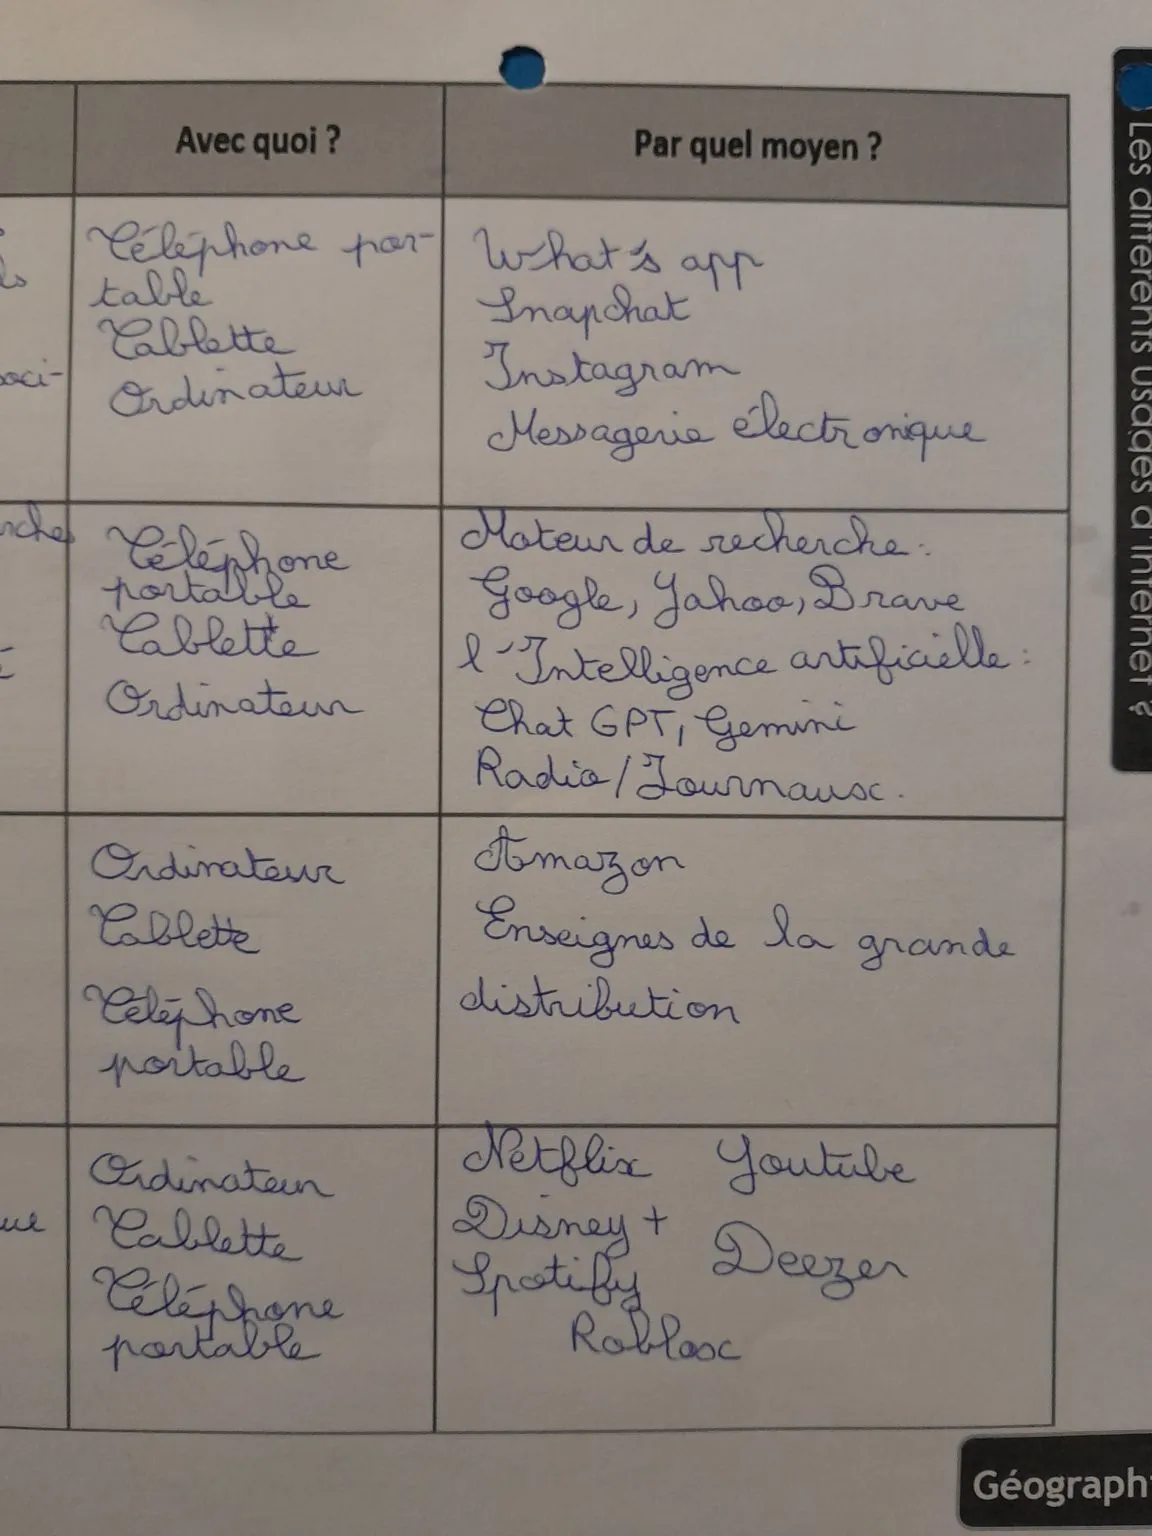 Avec quoi ?
Par quel moyen ?
Téléphone por-
table
Tablette
Ordinateur
What's app
Snapchat
Instagram
Messagerie électronique
oci-
Téléphone
portable
Tablette
Ordinateur
Moteur de recherche :
Google, Yahoo, Brave
l'Intelligence artificielle :
Chat GPT, Gemini
Radio/Journaux.
Ordinateur
Tablette
Téléphone
portable
Amazon
Enseignes de la grande
distribution
Ordinateur
Tablette
Téléphone
portable
Netflix Youtube
Disney +
Deezer
Spotify
Roblox
Les différents usages d'internet ?
Géograph